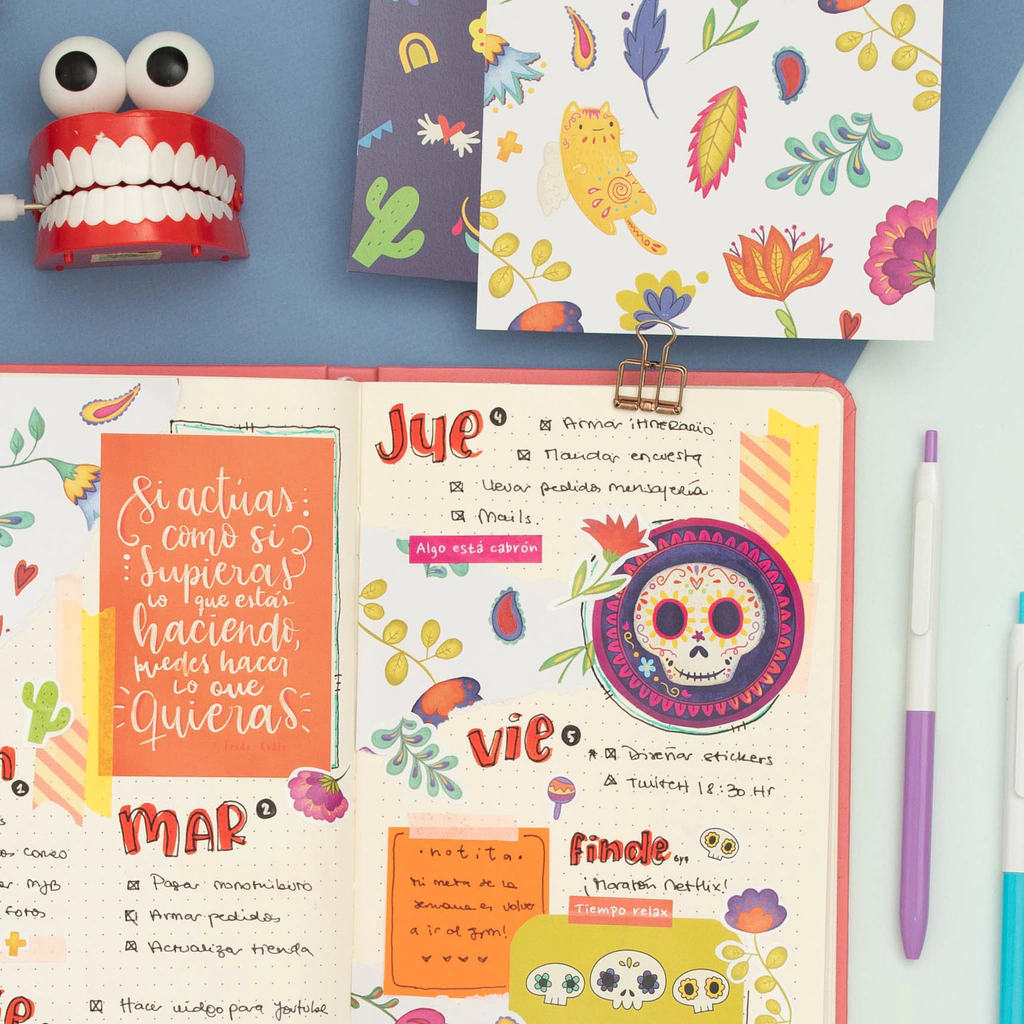 Si actúas
como si
Supieras
lo que estás
haciendo,
puedes hacer
lo que
Quieras
Frida Kahlo
1
MAR 2
Pagar monotributo
Armar pedidos
Actualizar tienda
Hacer video para youtube
JUE 4
Armar itinerario
Mandar encuesta
Llevar pedidos mensajería
Mails.
Algo está cabrón
vie 5
* Diseñar stickers
Twitch 18:30 Hr
·notita·
Mi meta de la
semana es volver
a ir al gym!
finde 6y7
¡Maratón Netflix!
Tiempo relax